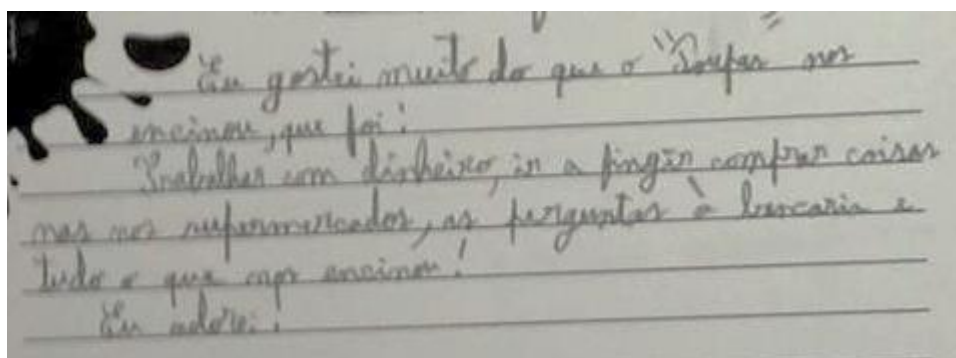 Eu gostei muito do que o "Soufar" nos
encinou, que foi:
Trabalhar com dinheiro, ir a fingir comprar coisas
mas nos supermercados, as perguntas à bancaria e
tudo o que nos encinou!
Eu adorei!